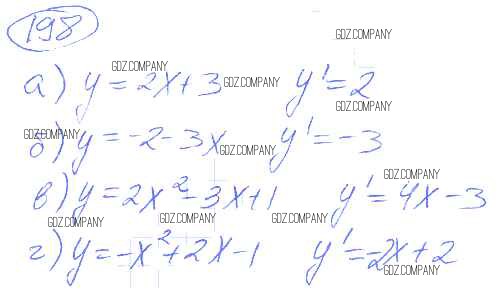 198
GDZ.COMPANY
GDZ.COMPANY
а) y = 2x + 3 GDZ.COMPANY y' = 2
GDZ.COMPANY
GDZ.COMPANY
б) y = -2 - 3x GDZ.COMPANY y' = -3
GDZ.COMPANY
в) y = 2x² - 3x + 1 y' = 4x - 3
GDZ.COMPANY GDZ.COMPANY GDZ.COMPANY
г) y = -x² + 2x - 1 y' = -2x + 2
GDZ.COMPANY